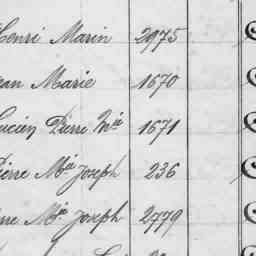 Henri Marin 2975
Jean Marie 1670
Lucien Pierre Mie 1671
Pierre Mie Joseph 236
Pierre Mie Joseph 2779